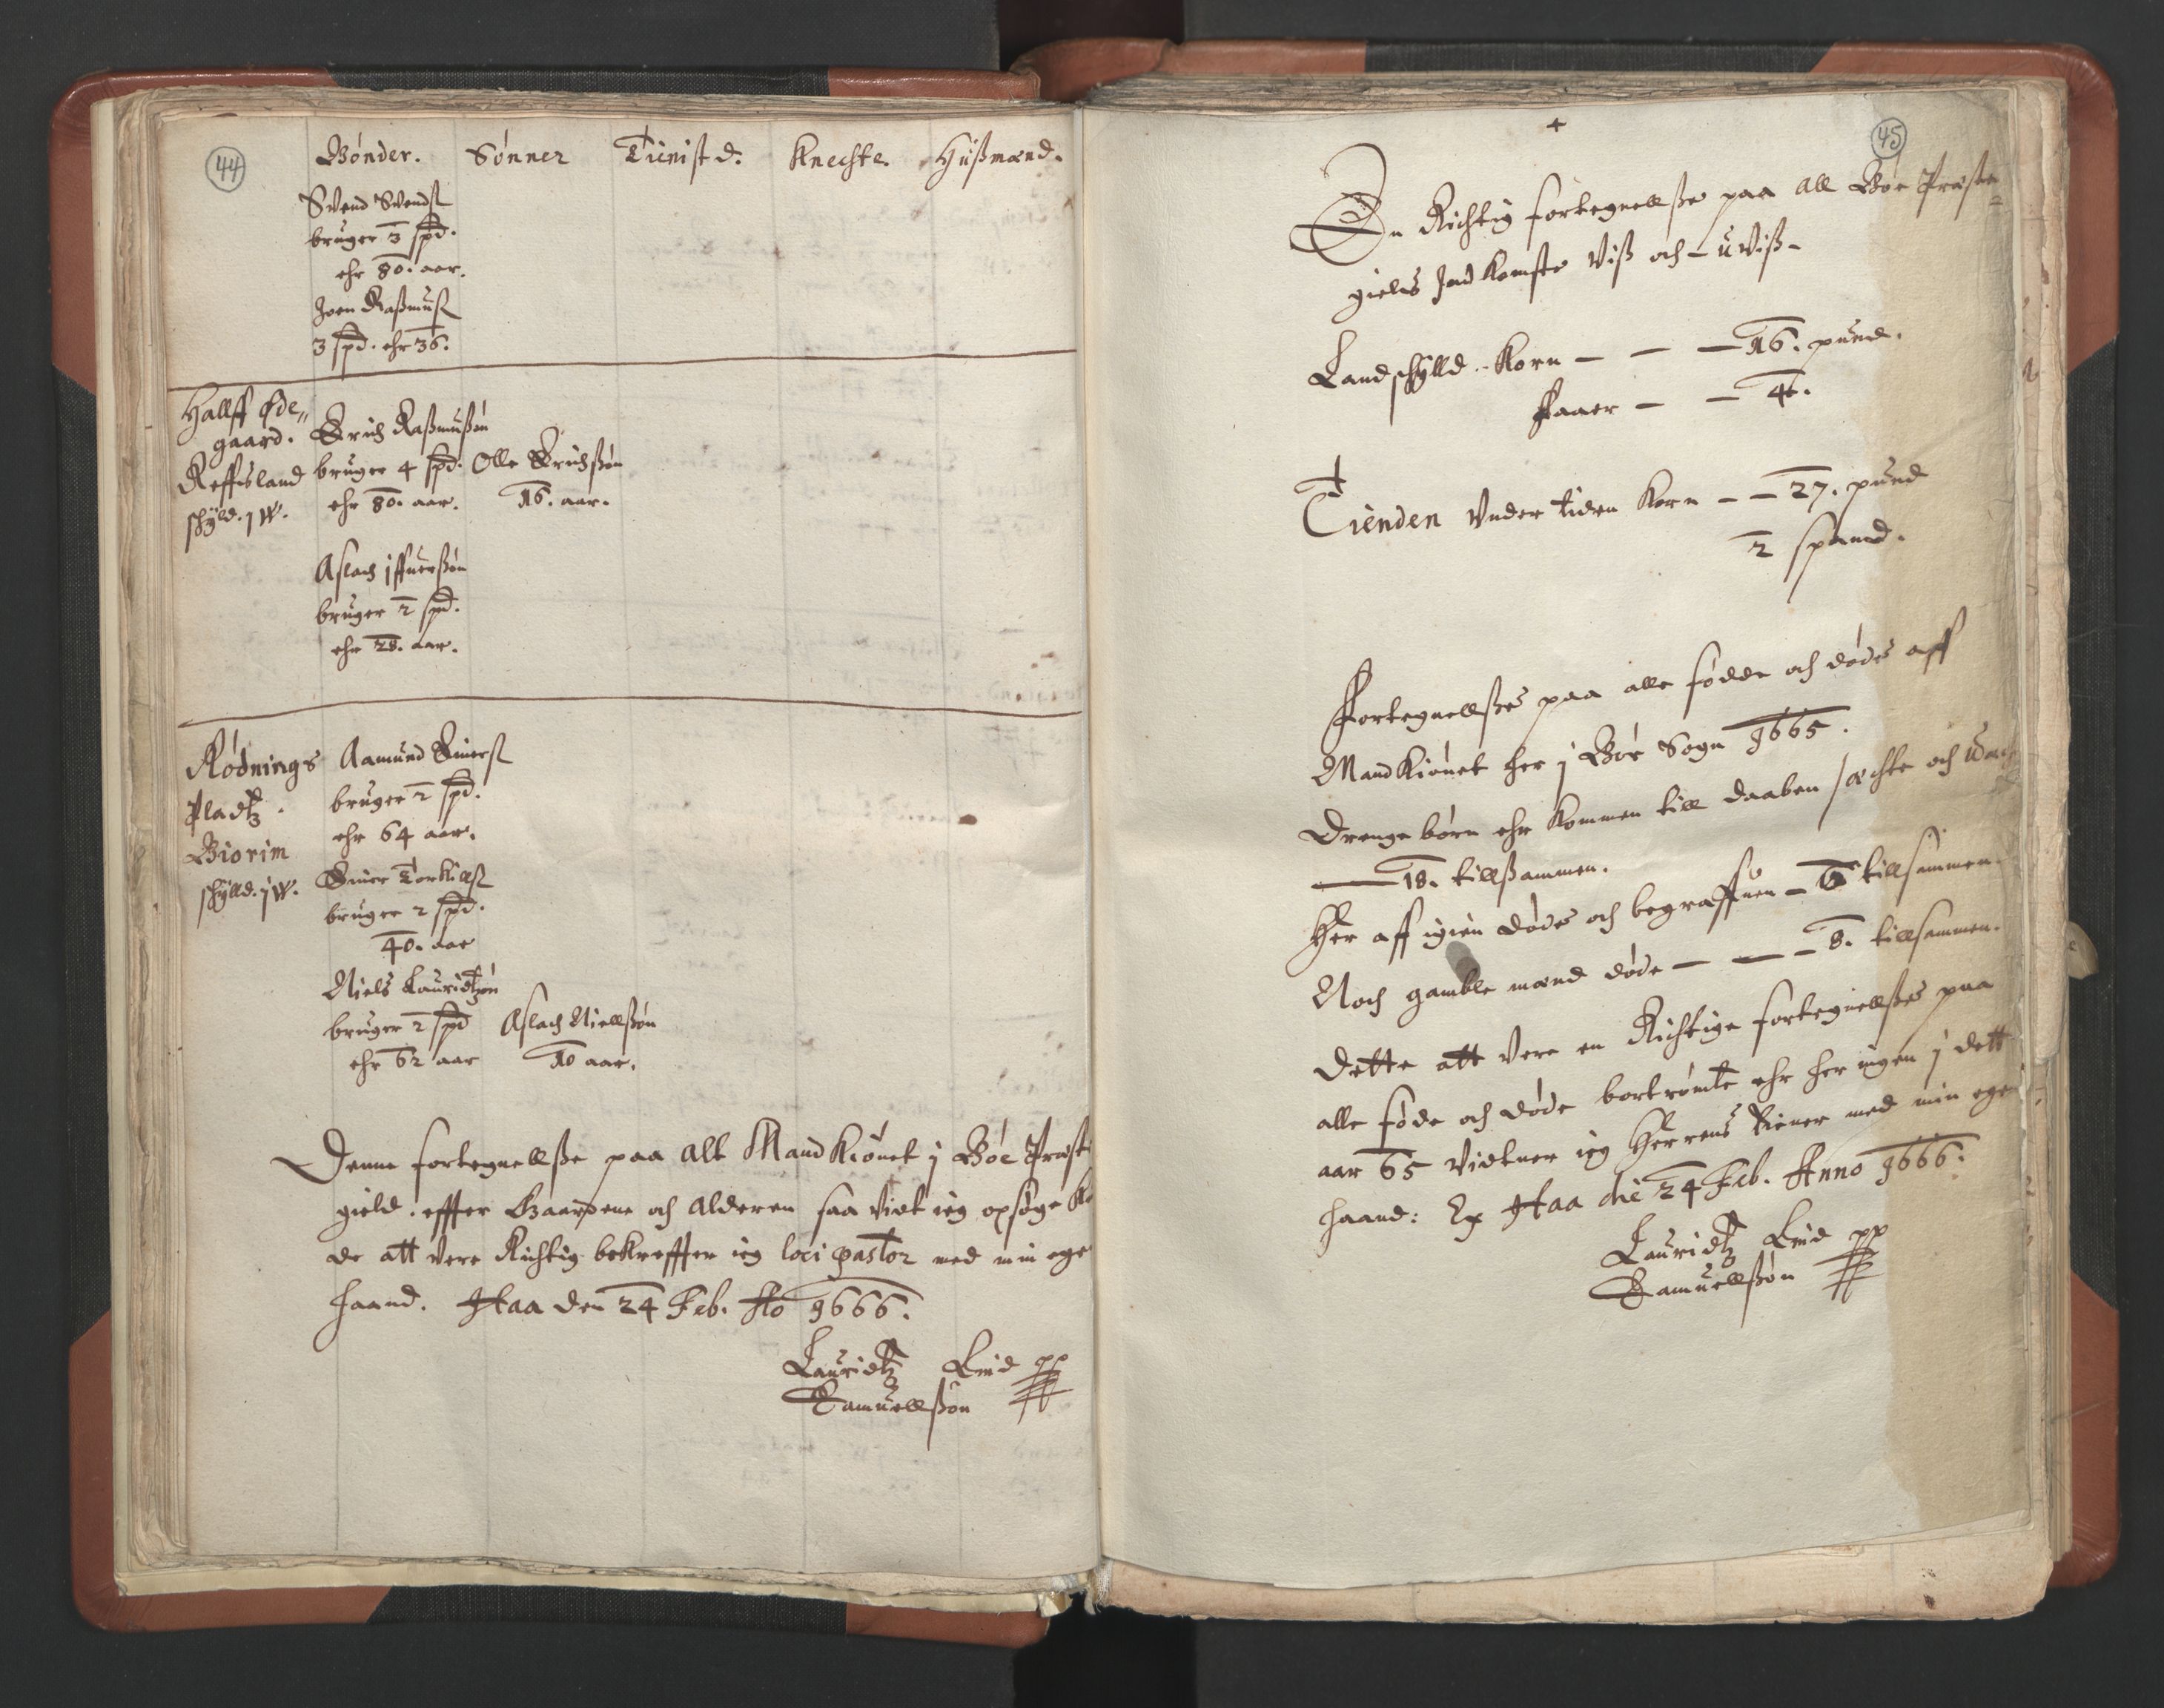 44
Bønder. Sønner Tienist d. Knechte. Hüßmænd.
Svend Svends
bruger 3 spd.
ehr 80. aar.
Joen Raßmus
3 spd. ehr 36.
Hallff Øde„
gaard.
Reffsland
schÿld. 1 W.
Erich Raßmußøn
bruger 4 spd.
ehr 80. aar.
Olle Erichßøn
16. aar.
Aslach Iffuerßøn
bruger 2 spd.
ehr 28. aar.
Rødnings
Pladtz.
Biorim
schÿlld. j W.
Aamund Einers
bruger 2 spd.
ehr 64 aar.
Einer Torkills
bruger 2 spd.
40. aar
Niels Lauridtzøn
bruger 2 spd
ehr 62 aar
Aslach Nielßøn
10 aar.
Denne fortegnellße paa alt MandKiønet j Bøe Præste
gield. effter Gaardene och Alderen saa vidt ieg opsøge Ku
de att vere Richtig bekreffter ieg loci pastor med min egen
haand. Haa den 24 Feb. Ao 1666.
Lauridtz Lind pp
Samuellßøn
45
En Richtig fortegnellße paa all Bøe Præste=
gields Ind Komste Viß och - uviß -
Landschÿlld - Korn - - - 16. pund.
Faaer - - 4.
Tienden Under tiden Korn - - 27. pund
2 spand.
Fortegnellße paa alle fødde och døde aff
MandKiønet her j Bøe Sogn 1665.
Drenge børn ehr Kommen till daaben / echte och
18. tillßammen.
Her aff igien døde och begraffuen - tillsammen.
Noch gamble mænd døde - - - 8. tillsammen.
Dette att vere en Richtige fortegnellße paa
alle føde och døde bortrømte ehr her ingen j dett
aar 65 Vidtner ieg Herrens Tiener med min egen
haand: Ex Haa die 24 Feb. Anno 1666.
Lauridtz Lind pp
Samuellßøn